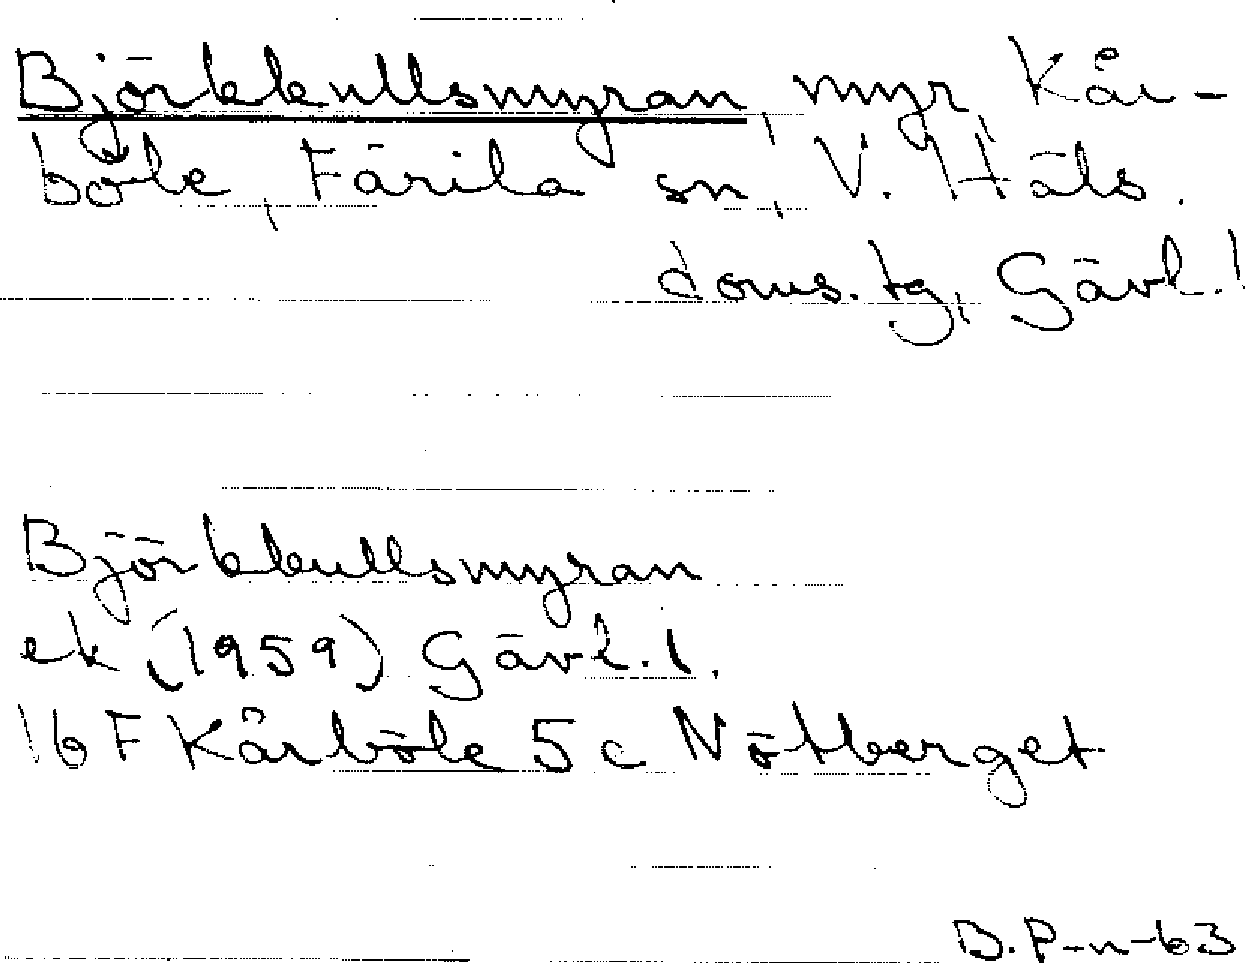 Björkkullsmyran, myr Kår-
böle, Färila sn, V. Häls.
doms. tg, Gävl. l
Björkkullsmyran
ek (1959) Gävl. l.
16 F Kårböle 5 c Nötberget
B. P-n-63